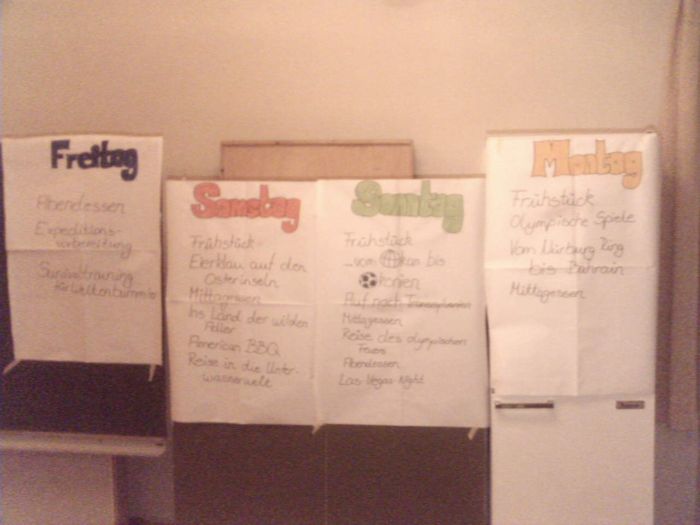 Freitag
Abendessen
Expeditions-
vorbereitung
Survivaltraining
für Weltenbummler
Samstag
Frühstück
Eierklau auf den
Osterinseln
Mittagessen
Ins Land der wilden
Adler
American BBQ
Reise in die Unter-
wasserwelt
Sonntag
Frühstück
...vom kan bis
konien
Auf nach Transsylvanien
Mittagessen
Reise des olympischen
Feuers
Abendessen
Las-Vegas-Night
Montag
Frühstück
Olympische Spiele
Vom Nürburg Ring
bis Bahrain
Mittagessen